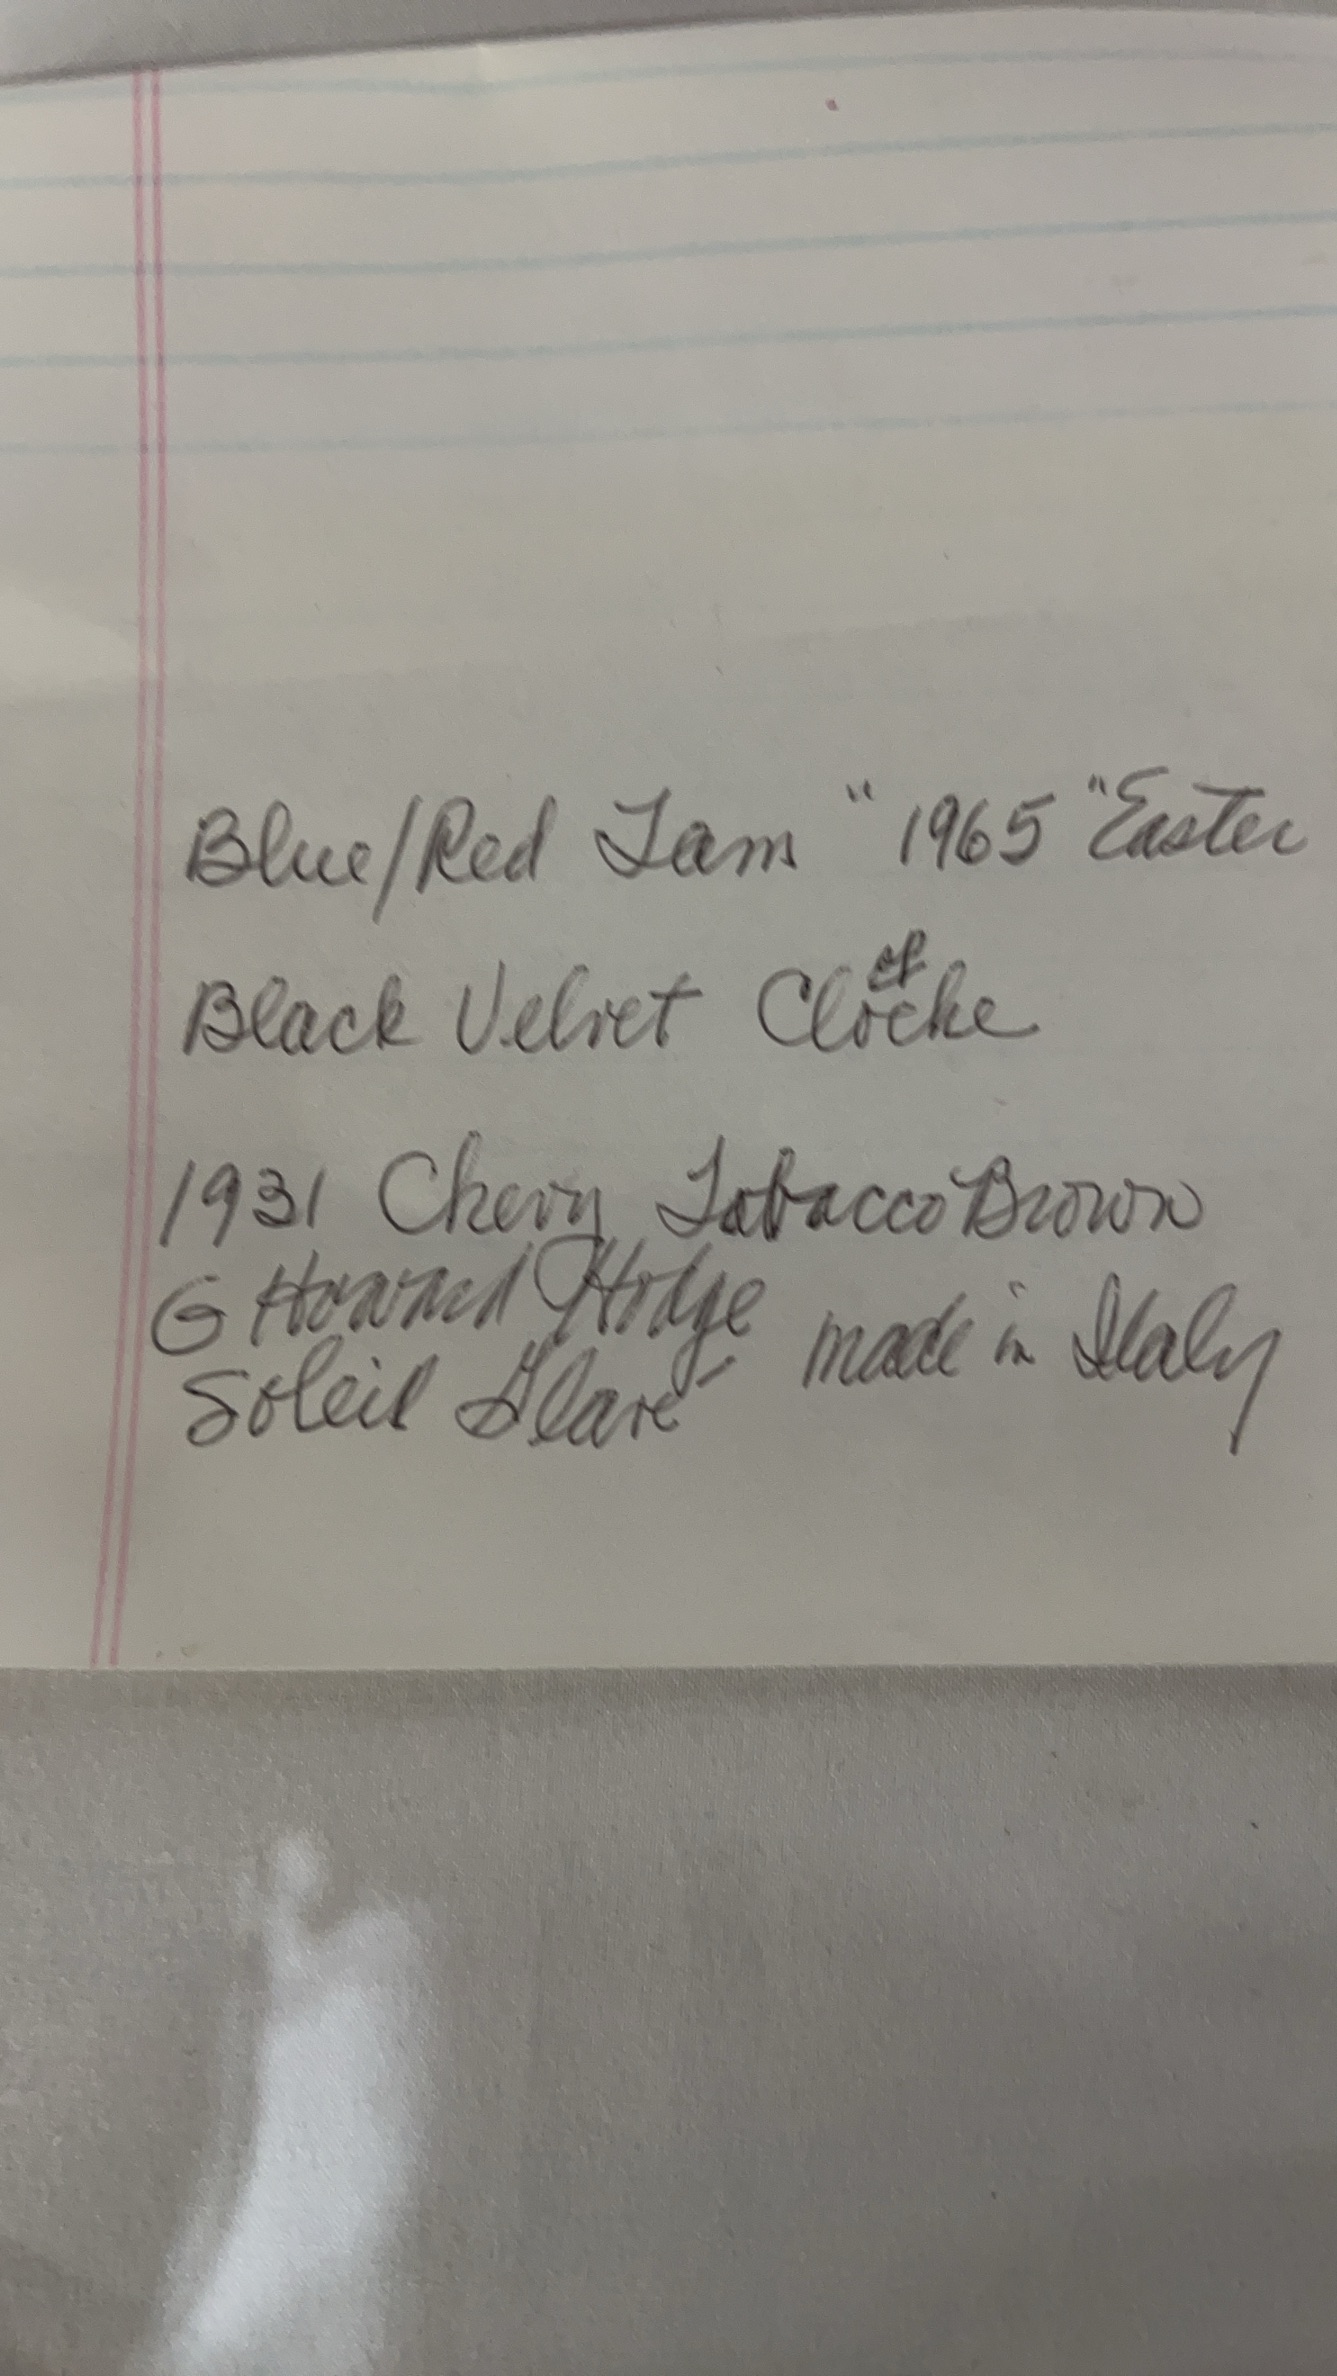 Blue/Red Tam "1965" Easter
Black Velvet Cloche
1931 Chevy Tobacco Brown
G Howard Hodge
Soleil made in Italy